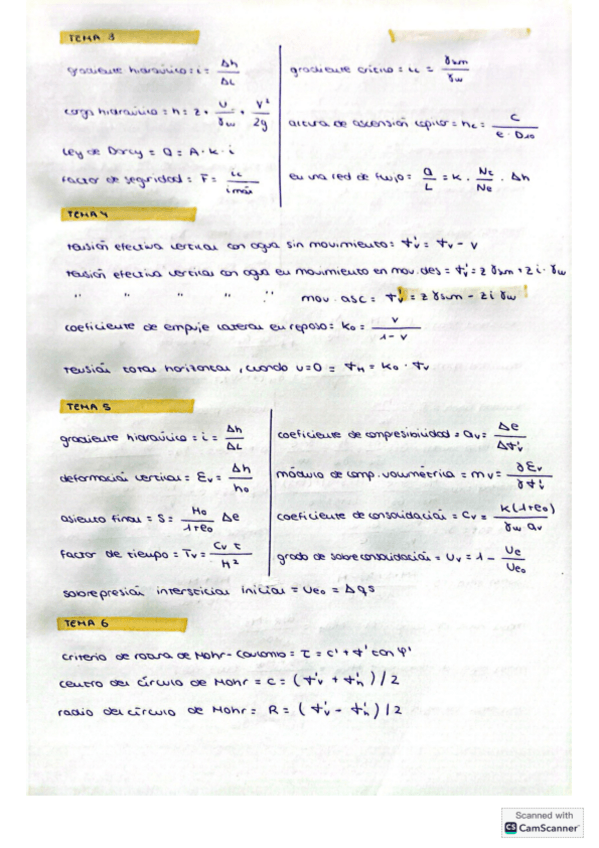 TEMA 3
gradiente hidráulico = i = Δh / ΔL
carga hidráulica = h = z + u / γw + v² / 2g
Ley de Darcy = Q = A · K · i
factor de seguridad = F = ic / imáx
gradiente crítico = ic = γsum / γw
altura de ascensión capilar = hc = C / e · D10
en una red de flujo = Q / L = K · Nc / Ne · Δh
TEMA 4
tensión efectiva vertical con agua sin movimiento = σ'v = σv - u
tensión efectiva vertical con agua en movimiento en mov. des = σ'v = z γsum + z i · γw
" " " " " mov. asc = σ'v = z γsum - z i γw
coeficiente de empuje lateral en reposo = K0 = ν / 1 - ν
tensión total horizontal, cuando u=0 = σh = K0 · σv
TEMA 5
gradiente hidráulico = i = Δh / ΔL
deformación vertical = Ev = Δh / h0
asiento final = S = H0 / 1+e0 Δe
factor de tiempo = Tv = Cv t / H²
coeficiente de compresibilidad = av = Δe / Δσ'v
módulo de comp. volumétrica = mv = ∂Ev / σ'v
coeficiente de consolidación = Cv = K(1+e0) / γw av
grado de sobreconsolidación = Uv = 1 - Ue / Ue0
sobrepresión intersticial inicial = Ue0 = Δqs
TEMA 6
criterio de rotura de Mohr-Coulomb = τ = c' + σ' tan φ'
centro del círculo de Mohr = C = (σ'v + σ'h) / 2
radio del círculo de Mohr = R = (σ'v - σ'h) / 2
Scanned with
CS CamScanner